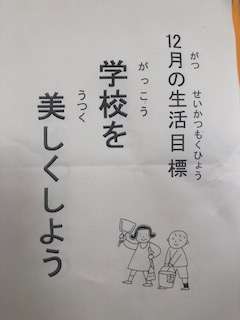 12月の生活目標
がつ せいかつもくひょう
学校を
がっこう
美しくしよう
うつく